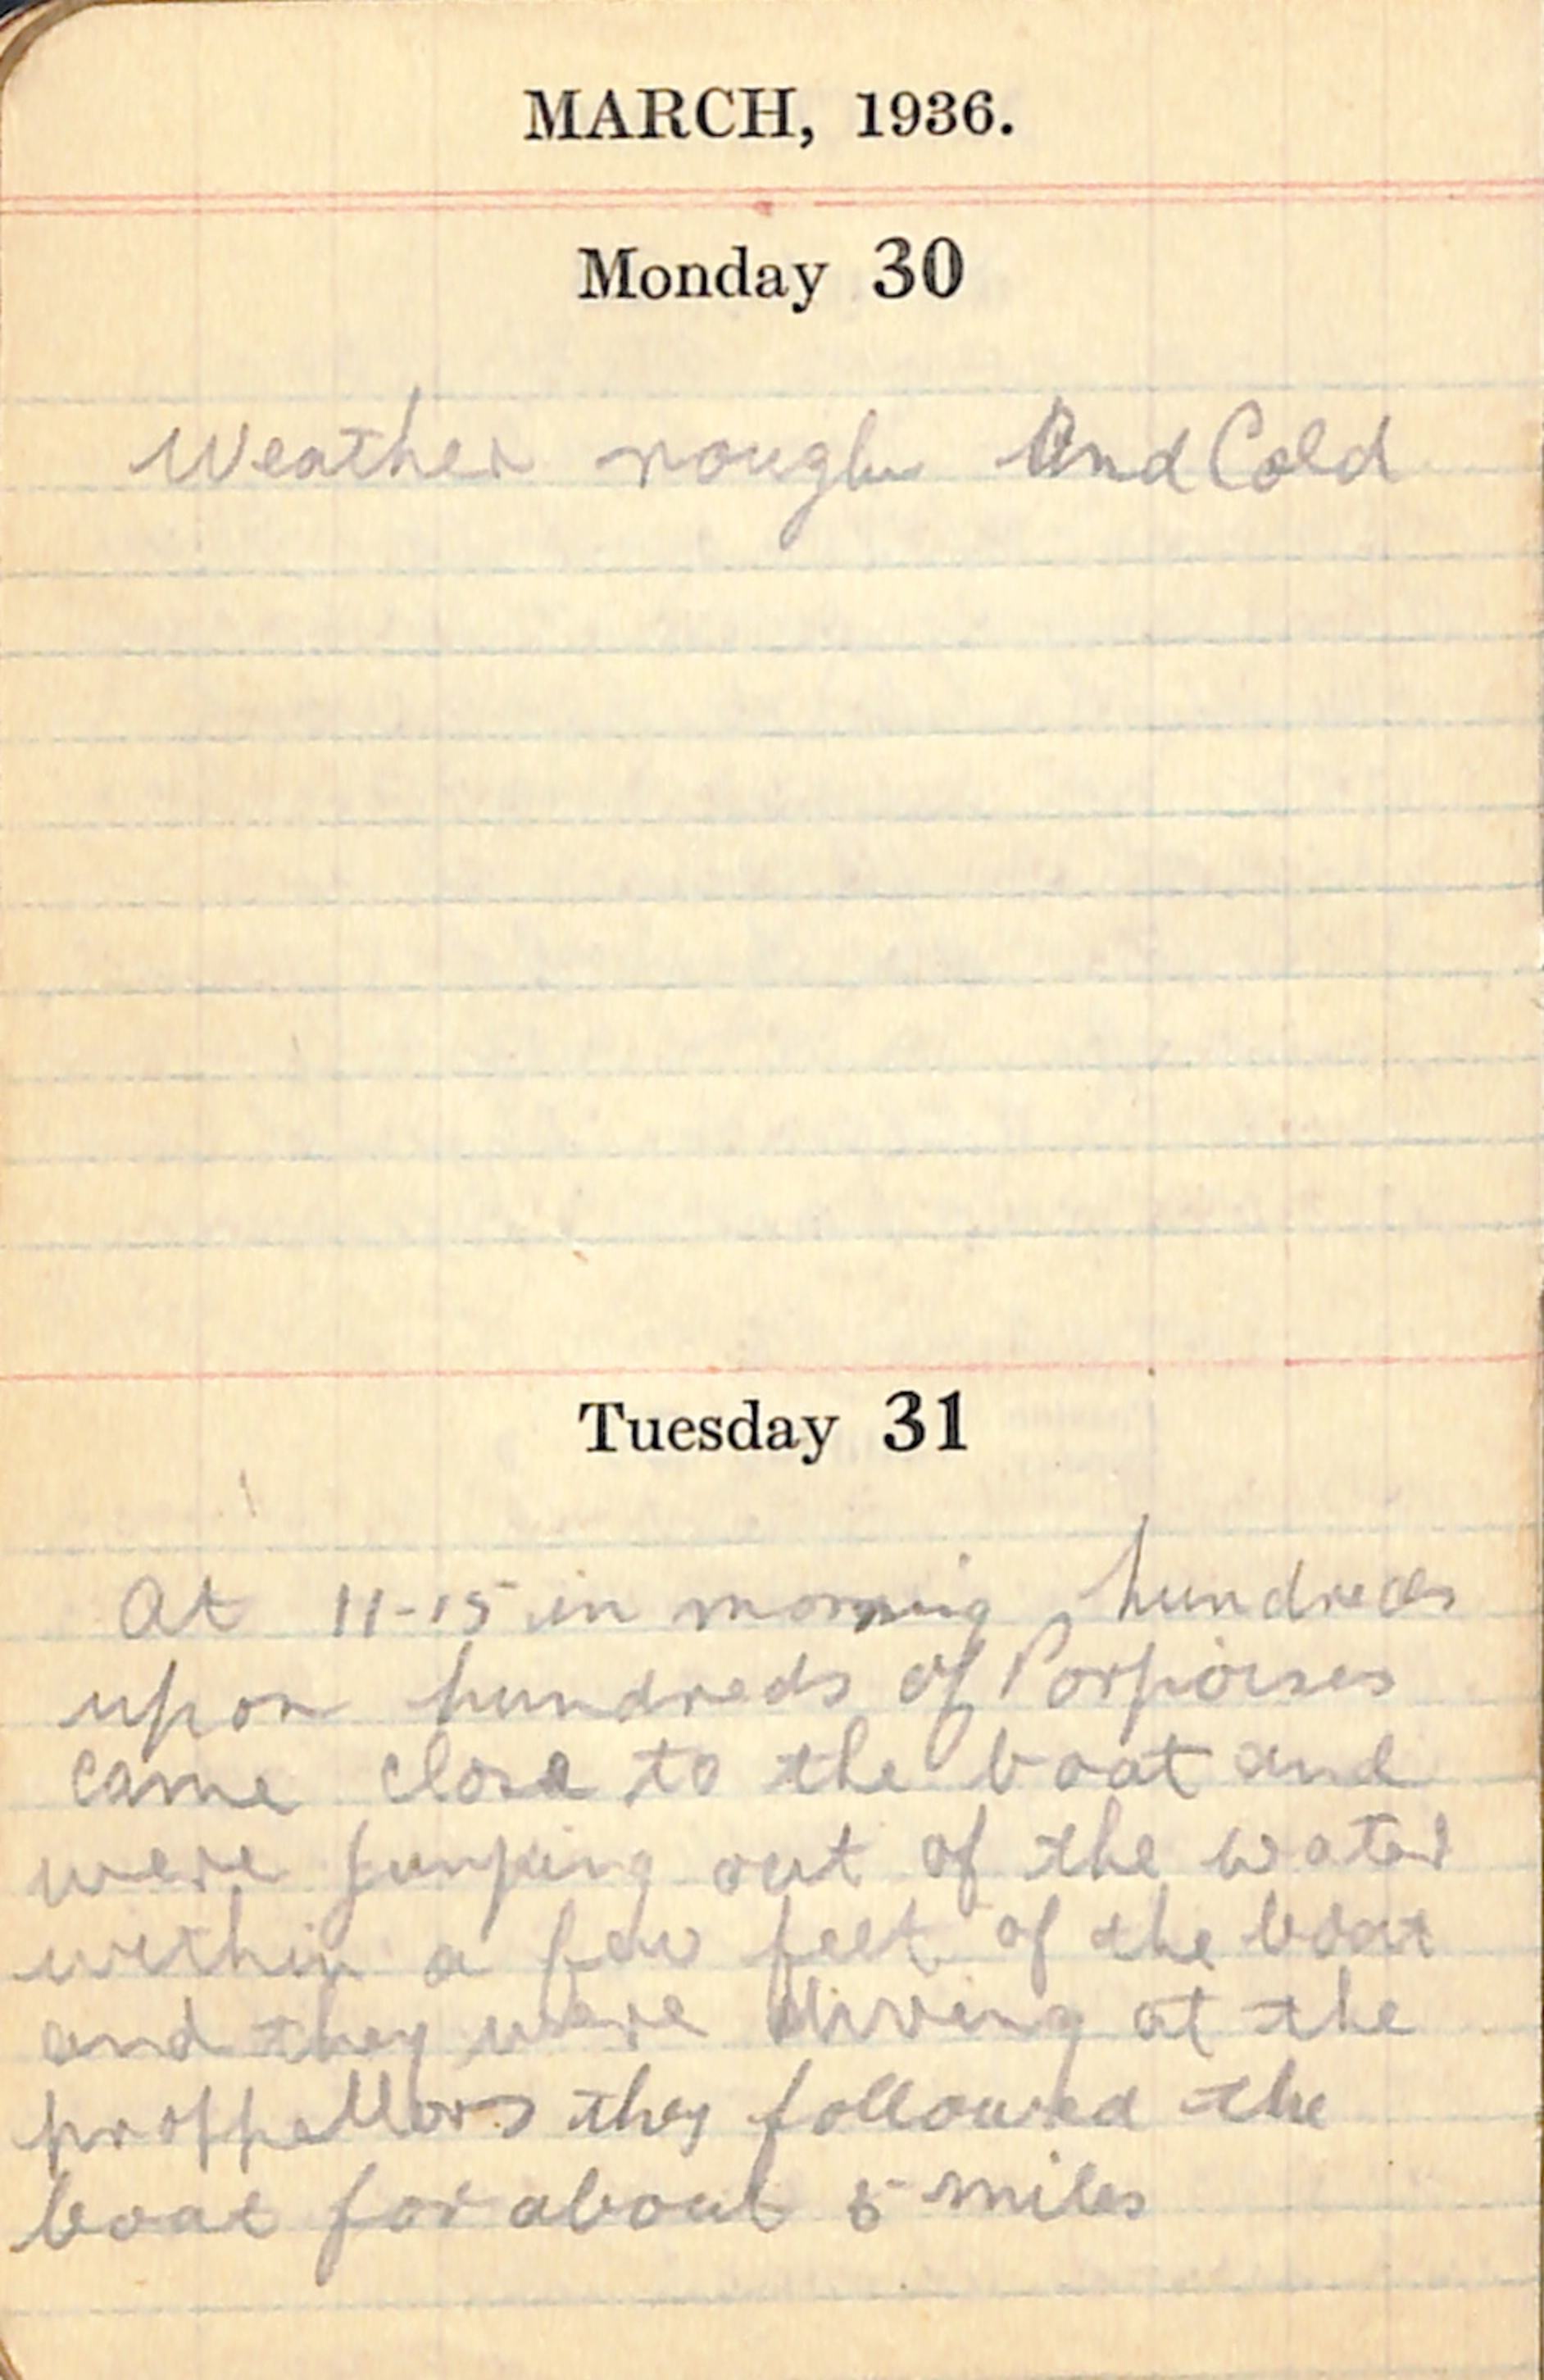 MARCH, 1936.
Monday 30
Weather rough And Cold
Tuesday 31
At 11-15 in morning hundreds
upon hundreds of Porpoises
came close to the boat and
were jumping out of the water
within a few feet of the boat
and they were diving at the
proppellors they followed the
boat for about 5 miles